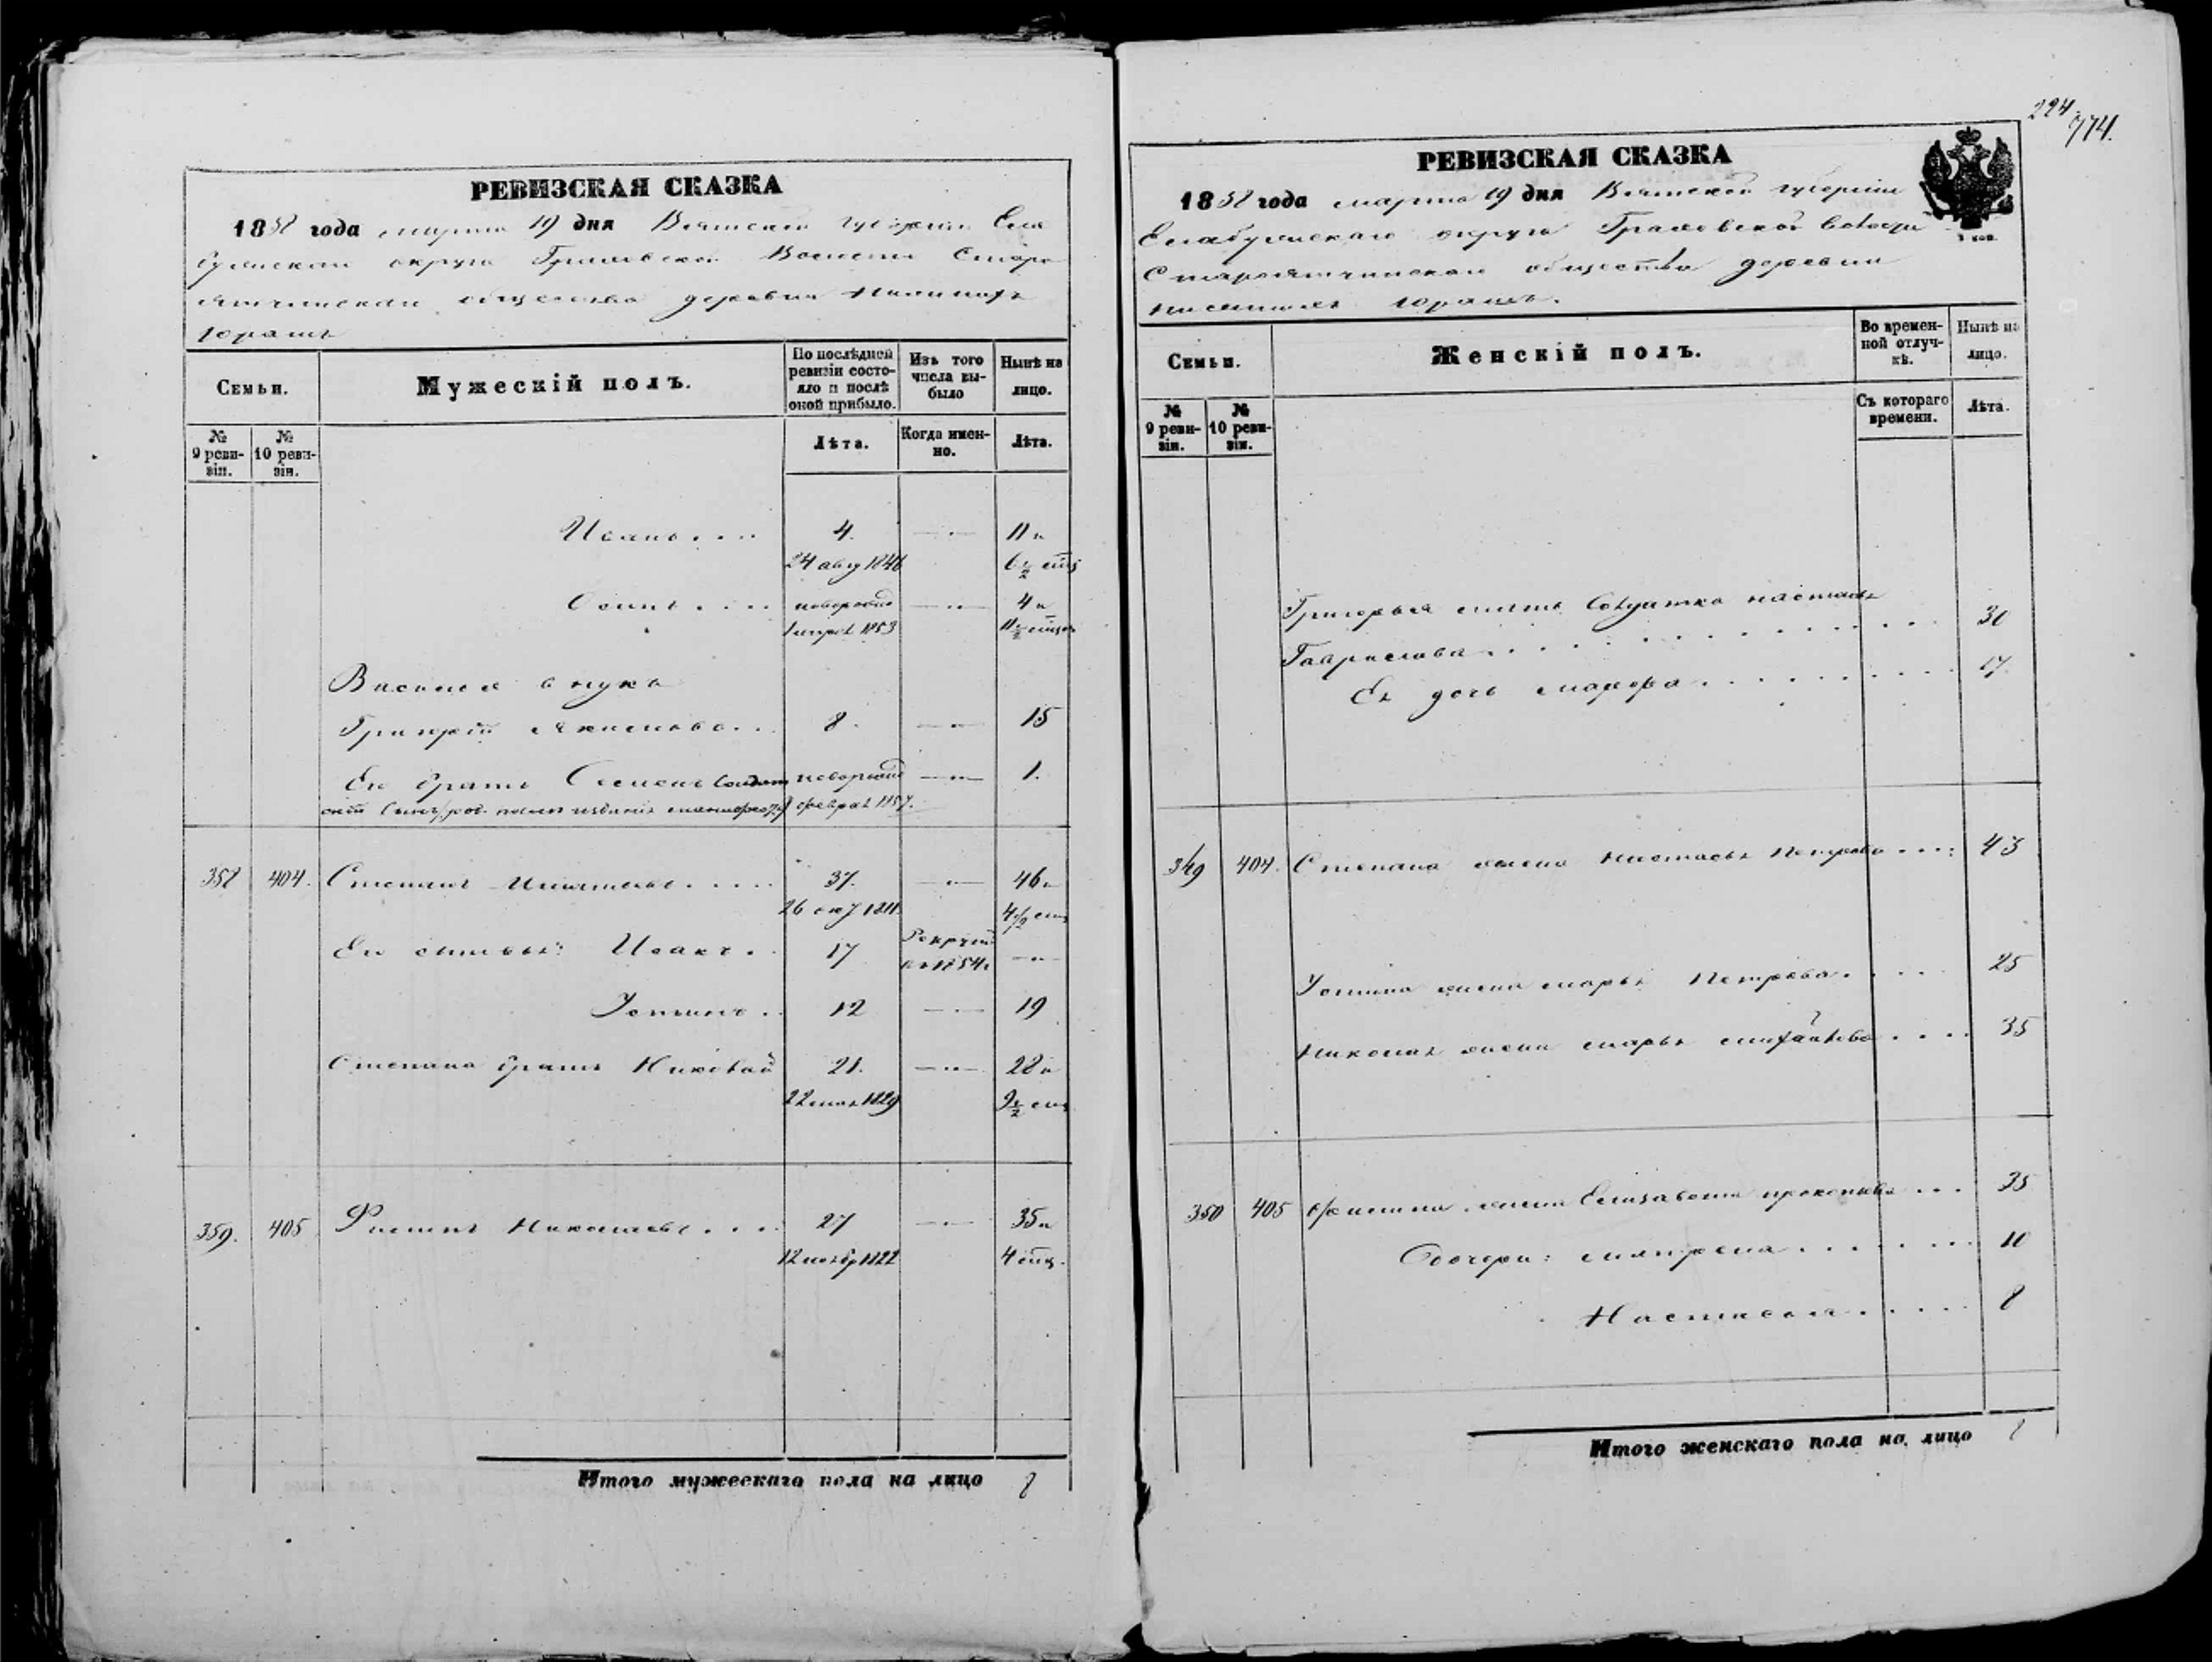 РЕВИЗСКАЯ СКАЗКА
1858 года марта 19 дня Вятской губернии Ела
бужскаго округа Граховской Волости Старо
ятчинскаго общества деревни
Юрашъ
Семьи.
Мужескій полъ.
По послѣдней ревизіи состояло и послѣ оной прибыло.
Изъ того числа выбыло
Нынѣ на лицо.
№ 9 ревизіи.
№ 10 ревизіи.
Лѣта.
Когда именно.
Лѣта.
Иванъ . . . . 4. 11 и
24 авгу 1846 6 1/2 мѣц
Осипъ . . . . новорожд 4 и
1853 11 1/2 мѣцов
Василья внукъ
Григорій Якимовъ . . . 8. 15
Его братъ Семенъ Солдат новорожд 1.
скій сынъ, рож. после феврал 1857.
358 404. Степанъ Игнатьевъ . . . . . 37. 46 и
26 окт 1811 4 1/2 мѣц
Его сыновья: Исакъ . 17 Рекрут
въ 1854 г
Устинъ . . 12 19
Степана братъ Николай 21. 28 и
22 мая 1829 9 1/2 мѣц
359. 405 Филипъ Николаевъ . . . . 27 35 и
12 ноябр 1822 4 мѣц.
Итого мужескаго пола на лицо 8
224
774.
РЕВИЗСКАЯ СКАЗКА
1858 года марта 19 дня Вятской губерніи
Елабужскаго округа Граховской волости
Староятчинскаго общества деревни
Юрашъ.
Семьи.
Женскій полъ.
Во временной отлучкѣ.
Нынѣ на лицо.
№ 9 ревизіи.
№ 10 ревизіи.
Съ котораго времени.
Лѣта.
Григорья мать Солдатка Настасья
Гаврилова . . . . . . . . . . . . . 30
Ея дочь . . . . . . . . . . 17.
349 404. Степана жена Настасья Петрова . . . : 43
Устина жена Марья Петрова . . . . 25
Николая жена Марья Михайлова . . . . 35
350 405 Филипа жена Елизавета Прокопьева . . . 35
Дочери: Матрена . . . . . . . . 10
Настасья . . . . . 8
Итого женскаго пола на лицо 8